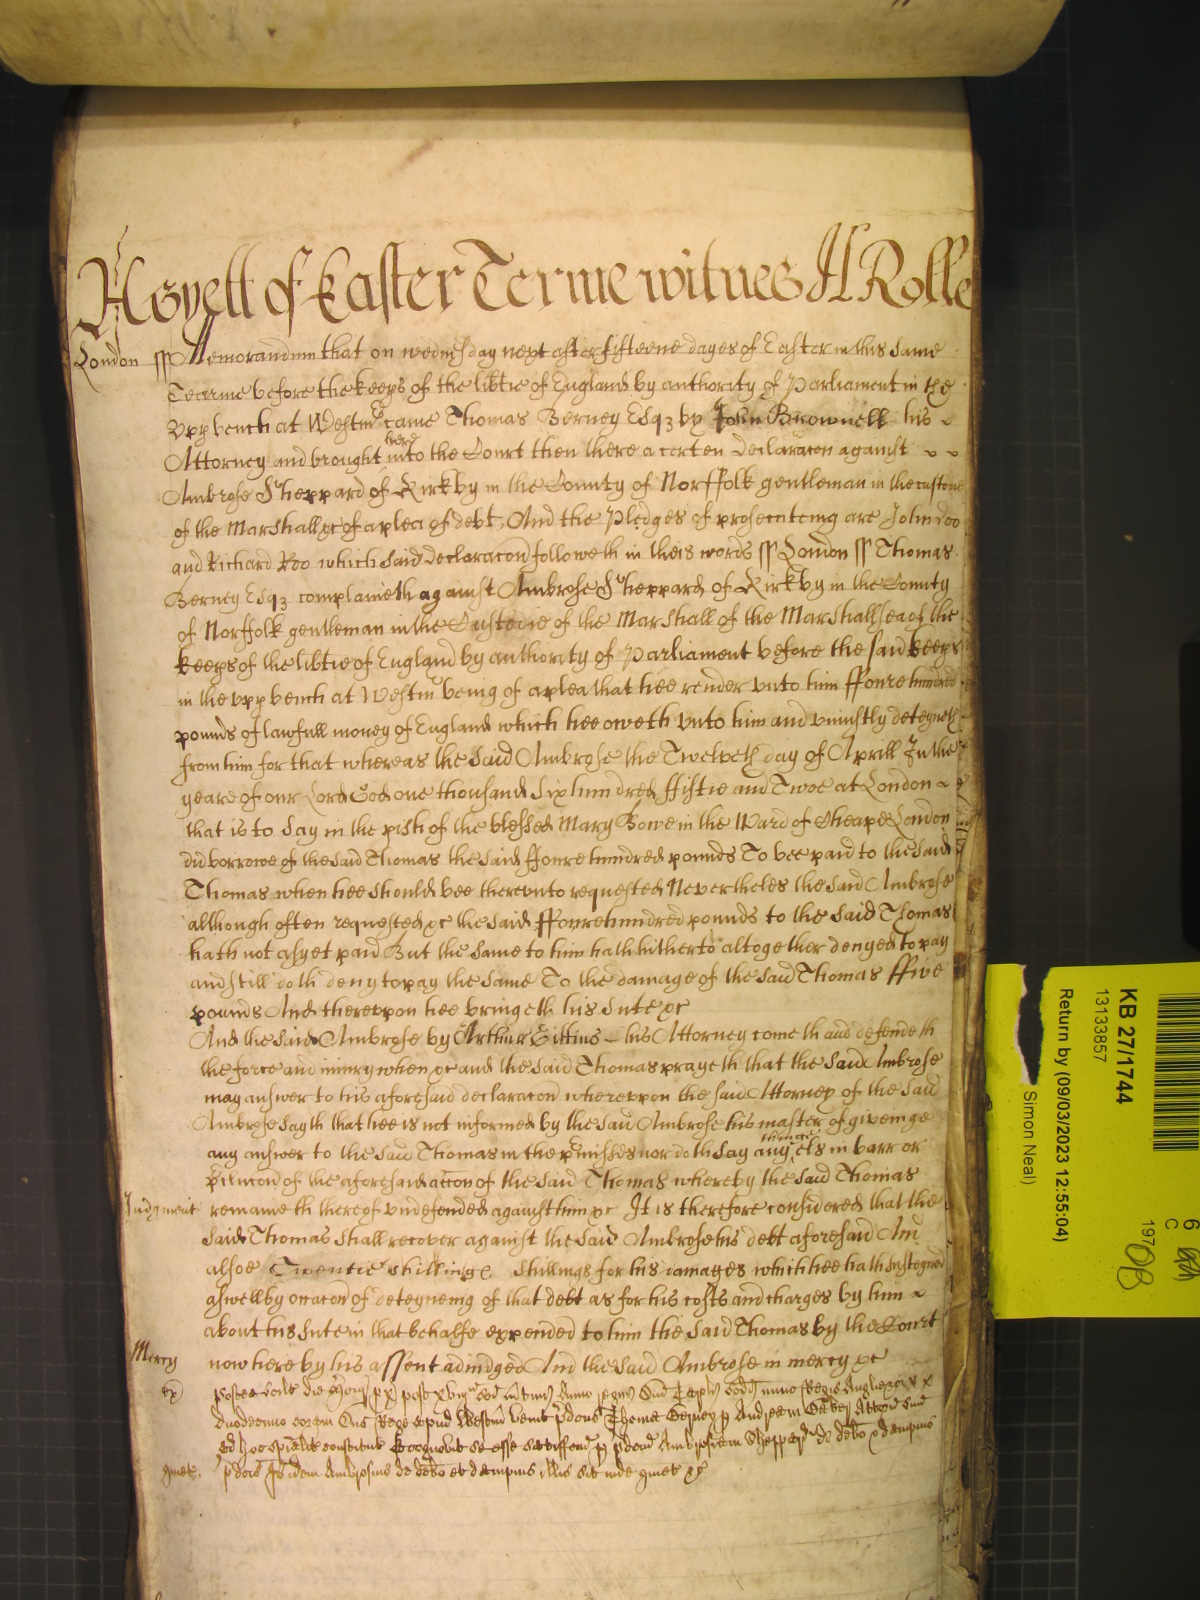 As yett of Easter Terme witnes H Rolle
London ss Memorandum that on wednesday next after fifteene dayes of Easter in this same
Tearme before the keeps of the libtie of England by authority of Parliament in the
upp bench at Westm came Thomas Berney Esqz by John Brownell his
Attorney and brought here into the Court then there a certen declaracon against
Ambrose Sheppard of Kirkby in the County of Norffolk gentleman in the custodie
of the Marshall &c of a plea of debt, And the Pledges of prosecuteing are John Doo
and Richard Roo which said declaracon followeth in theis words ss London ss Thomas
Berney Esqz complaineth against Ambrose Sheppard of Kirkby in the County
of Norffolk gentleman in the Custodie of the Marshall of the Marshallsea of the
keeps of the libtie of England by authority of Parliament before the said keeps
in the upp bench at Westm being of a plea that hee render unto him ffoure hundred
pounds of lawfull money of England which hee oweth unto him and uniustly deteyneth
from him for that whereas the said Ambrose the Twelveth day of Aprill In the
yeare of our Lord God one thousand six hundred ffiftie and Twoe at London
that is to say in the pish of the blessed Mary Bowe in the Ward of Cheape London
did borrowe of the said Thomas the said ffoure hundred pounds To bee paid to the said
Thomas when hee should bee thereunto requested Nevertheles the said Ambrose
although often requested &c the said ffoure hundred pounds to the said Thomas
hath not as yet paid But the same to him hath hitherto altogether denyed to pay
and still doth deny to pay the same To the damage of the said Thomas ffive
pounds And thereupon hee bringeth his sute &c
And the said Ambrose by Arthur Gittins his Attorney cometh and defendeth
the force and iniury when &c and the said Thomas prayeth that the said Ambrose
may answer to his aforesaid declaracon whereupon the said Attorney of the said
Ambrose sayth that hee is not informed by the said Ambrose his master of giveinge
any answer to the said Thomas in the pmisses nor doth say any thinge els in barr or
of the aforesaid accon of the said Thomas whereby the said Thomas
Judgment remaineth thereof undefended against him &c It is therefore considered that the
said Thomas shall recover against the said Ambrose his debt aforesaid And
alsoe Twentie shillinge shillings for his damages which hee hath susteyned
aswell by occacon of deteyneing of that debt as for his costs and charges by him
about his sute in that behalfe expended to him the said Thomas by the Court
Mercy now here by his assent adiudged And the said Ambrose in mercy &c
postea scilt die Anno regni Dni Caroli scdi nunc Regis Anglie &c
duodecimo coram Dno Rege apud Westm venit pdcus Thomas Berney p Andream Attorn suu
ad hoc spialit constitut & cognovit se esse satisfcm p pdcum Ambrosium Sheppard de debo & dampnis
pdcis Io idem Ambrosius de debo et dampnis illis sit inde quiet &c
KB 27/1744
13133857
Return by (09/03/2023 12:55:04)
Simon Neal)
6
C
197